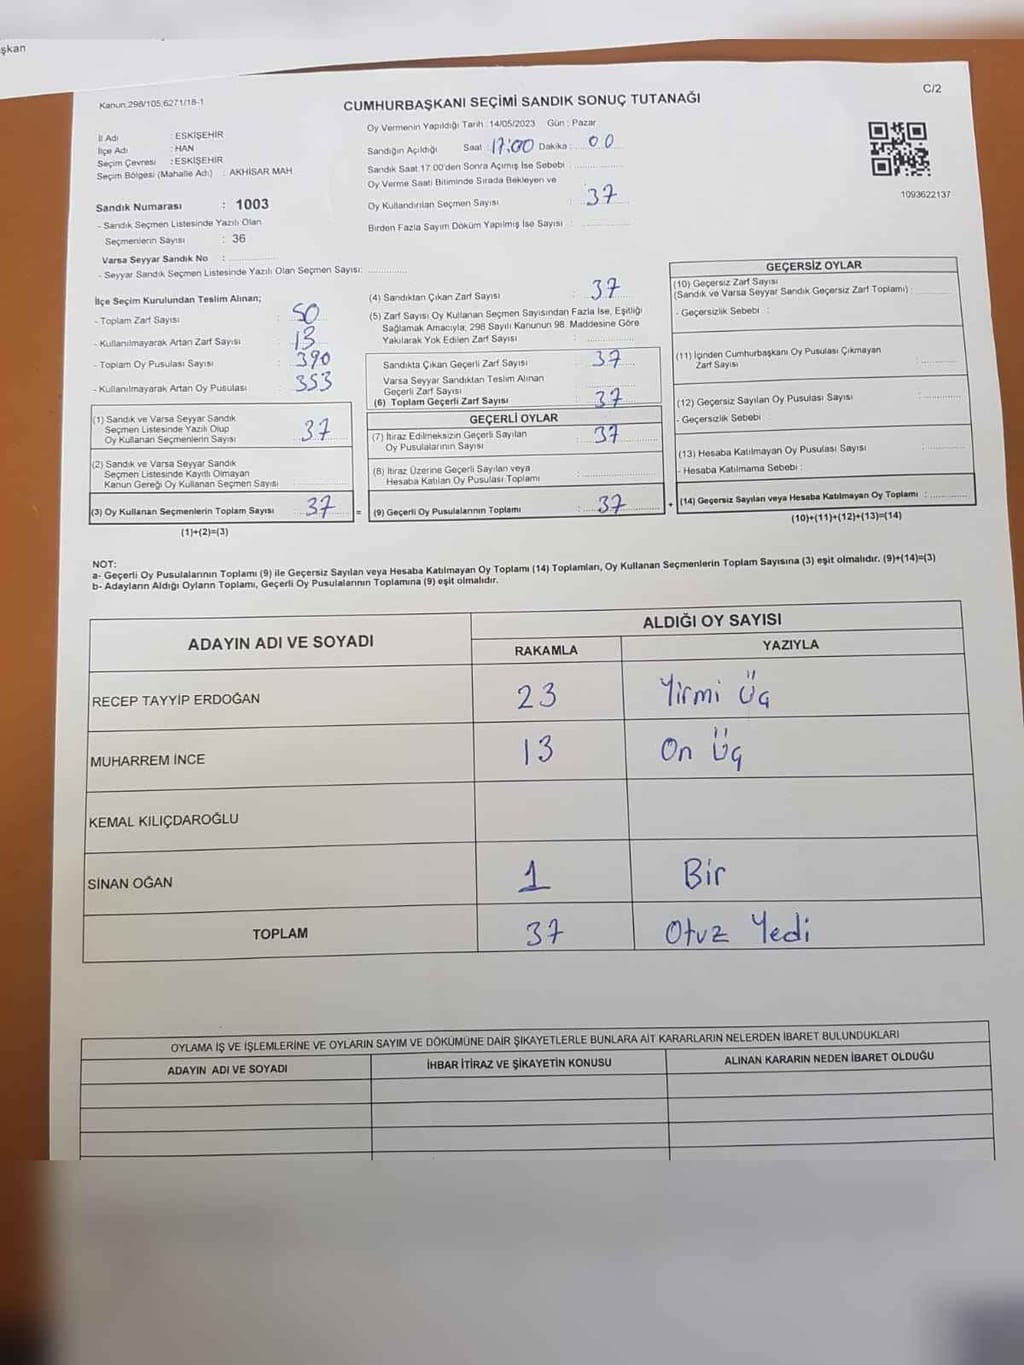 şkan
Kanun:298/105,6271/18-1
C/2
CUMHURBAŞKANI SEÇİMİ SANDIK SONUÇ TUTANAĞI
İl Adı : ESKİŞEHİR
İlçe Adı : HAN
Seçim Çevresi : ESKİŞEHİR
Seçim Bölgesi (Mahalle Adı) : AKHİSAR MAH
Oy Vermenin Yapıldığı Tarih : 14/05/2023 Gün : Pazar
Sandığın Açıldığı Saat : 17:00 Dakika : 00
Sandık Saat 17:00'den Sonra Açımış İse Sebebi :
Oy Verme Saati Bitiminde Sırada Bekleyen ve
Oy Kullandırılan Seçmen Sayısı : 37
Birden Fazla Sayım Döküm Yapılmış İse Sayısı :
1093622137
Sandık Numarası : 1003
- Sandık Seçmen Listesinde Yazılı Olan
Seçmenlerin Sayısı : 36
Varsa Seyyar Sandık No :
- Seyyar Sandık Seçmen Listesinde Yazılı Olan Seçmen Sayısı:
İlçe Seçim Kurulundan Teslim Alınan;
- Toplam Zarf Sayısı : 50
- Kullanılmayarak Artan Zarf Sayısı : 13
- Toplam Oy Pusulası Sayısı : 390
- Kullanılmayarak Artan Oy Pusulası : 353
(1) Sandık ve Varsa Seyyar Sandık
Seçmen Listesinde Yazılı Olup
Oy Kullanan Seçmenlerin Sayısı : 37
(2) Sandık ve Varsa Seyyar Sandık
Seçmen Listesinde Kayıtlı Olmayan
Kanun Gereği Oy Kullanan Seçmen Sayısı :
(3) Oy Kullanan Seçmenlerin Toplam Sayısı : 37
(1)+(2)=(3)
(4) Sandıktan Çıkan Zarf Sayısı : 37
(5) Zarf Sayısı Oy Kullanan Seçmen Sayısından Fazla İse, Eşitliği
Sağlamak Amacıyla, 298 Sayılı Kanunun 98. Maddesine Göre
Yakılarak Yok Edilen Zarf Sayısı :
Sandıkta Çıkan Geçerli Zarf Sayısı : 37
Varsa Seyyar Sandıktan Teslim Alınan
Geçerli Zarf Sayısı :
(6) Toplam Geçerli Zarf Sayısı : 37
GEÇERLİ OYLAR
(7) İtiraz Edilmeksizin Geçerli Sayılan
Oy Pusulalarının Sayısı : 37
(8) İtiraz Üzerine Geçerli Sayılan veya
Hesaba Katılan Oy Pusulası Toplamı :
= (9) Geçerli Oy Pusulalarının Toplamı : 37
GEÇERSİZ OYLAR
(10) Geçersiz Zarf Sayısı
(Sandık ve Varsa Seyyar Sandık Geçersiz Zarf Toplamı) :
- Geçersizlik Sebebi :
(11) İçinden Cumhurbaşkanı Oy Pusulası Çıkmayan
Zarf Sayısı :
(12) Geçersiz Sayılan Oy Pusulası Sayısı :
- Geçersizlik Sebebi :
(13) Hesaba Katılmayan Oy Pusulası Sayısı :
- Hesaba Katılmama Sebebi :
+ (14) Geçersiz Sayılan veya Hesaba Katılmayan Oy Toplamı :
(10)+(11)+(12)+(13)=(14)
NOT:
a- Geçerli Oy Pusulalarının Toplamı (9) ile Geçersiz Sayılan veya Hesaba Katılmayan Oy Toplamı (14) Toplamları, Oy Kullanan Seçmenlerin Toplam Sayısına (3) eşit olmalıdır. (9)+(14)=(3)
b- Adayların Aldığı Oyların Toplamı, Geçerli Oy Pusulalarının Toplamına (9) eşit olmalıdır.
ADAYIN ADI VE SOYADI
ALDIĞI OY SAYISI
RAKAMLA YAZIYLA
RECEP TAYYİP ERDOĞAN 23 Yirmi Üç
MUHARREM İNCE 13 On Üç
KEMAL KILIÇDAROĞLU
SİNAN OĞAN 1 Bir
TOPLAM 37 Otuz Yedi
OYLAMA İŞ VE İŞLEMLERİNE VE OYLARIN SAYIM VE DÖKÜMÜNE DAİR ŞİKAYETLERLE BUNLARA AİT KARARLARIN NELERDEN İBARET BULUNDUKLARI
ADAYIN ADI VE SOYADI İHBAR İTİRAZ VE ŞİKAYETİN KONUSU ALINAN KARARIN NEDEN İBARET OLDUĞU